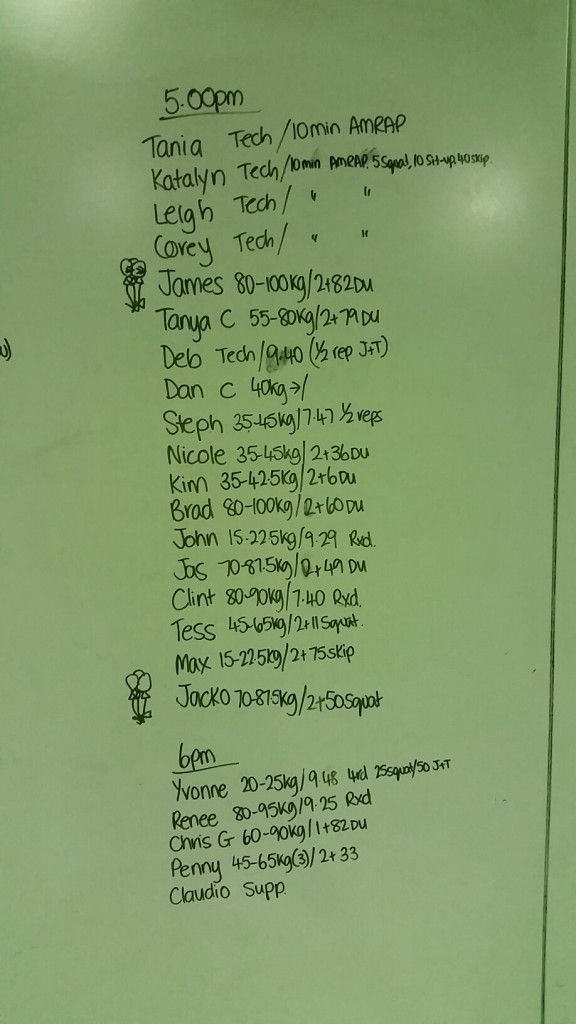 5.00pm
Tania Tech/10min AMRAP
Katalyn Tech/10min AMRAP. 5Squat, 10 Sit-up, 40skip.
Leigh Tech/ " "
Corey Tech/ " "
James 80-100kg/2+82DU
Tanya C 55-80kg/2+79DU
U)
Deb Tech/9.40 (1/2 rep J+T)
Dan C 40kg→/
Steph 35-45kg/7.47 1/2 reps
Nicole 35-45kg/2+36DU
Kim 35-42.5kg/2+6DU
Brad 80-100kg/2+60DU
John 15-22.5kg/9.29 Rxd.
Jas 70-87.5kg/2+49DU
Clint 80-90kg/7.40 Rxd.
Tess 45-65kg/2+11Squat.
Max 15-22.5kg/2+75skip
Jacko 70-87.5kg/2+50squat
6pm
Yvonne 20-25kg/9.48 4rd 25squat/50 J+T
Renee 80-95kg/9.25 Rxd
Chris G 60-90kg/1+82DU
Penny 45-65kg(3)/2+33
Claudio Supp.